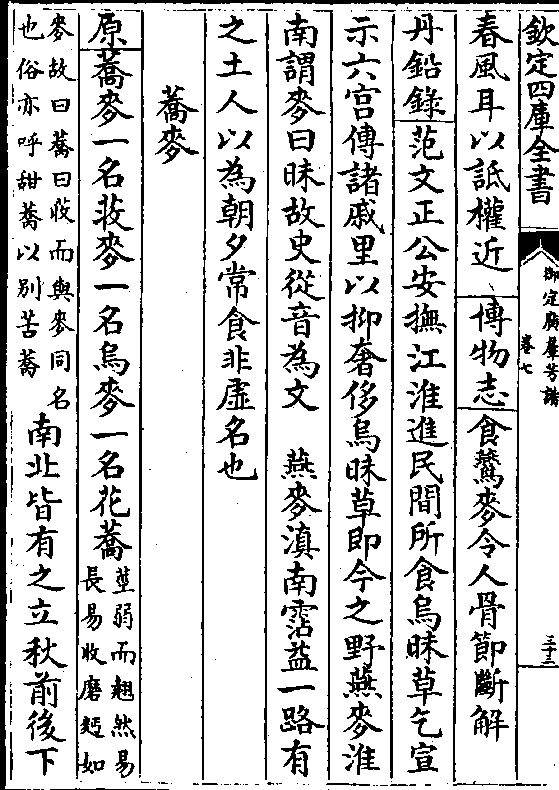 欽定四庫全書
御定廣羣芳譜
卷七
三十三
春風耳以詆權近 博物志食䴬麥令人骨節斷解
丹鉛錄范文正公安撫江淮進民間所食烏昧草乞宣
示六宮傳諸戚里以抑奢侈烏昧草即今之野燕麥淮
南謂麥曰昧故史從音為文 燕麥滇南霑益一路有
之土人以為朝夕常食非虛名也
蕎麥
原蕎麥一名荍麥一名烏麥一名花蕎莖弱而翹然易
長易收磨麪如
麥故曰蕎曰荍而與麥同名
也俗亦呼甜蕎以別苦蕎
南北皆有之立秋前後下